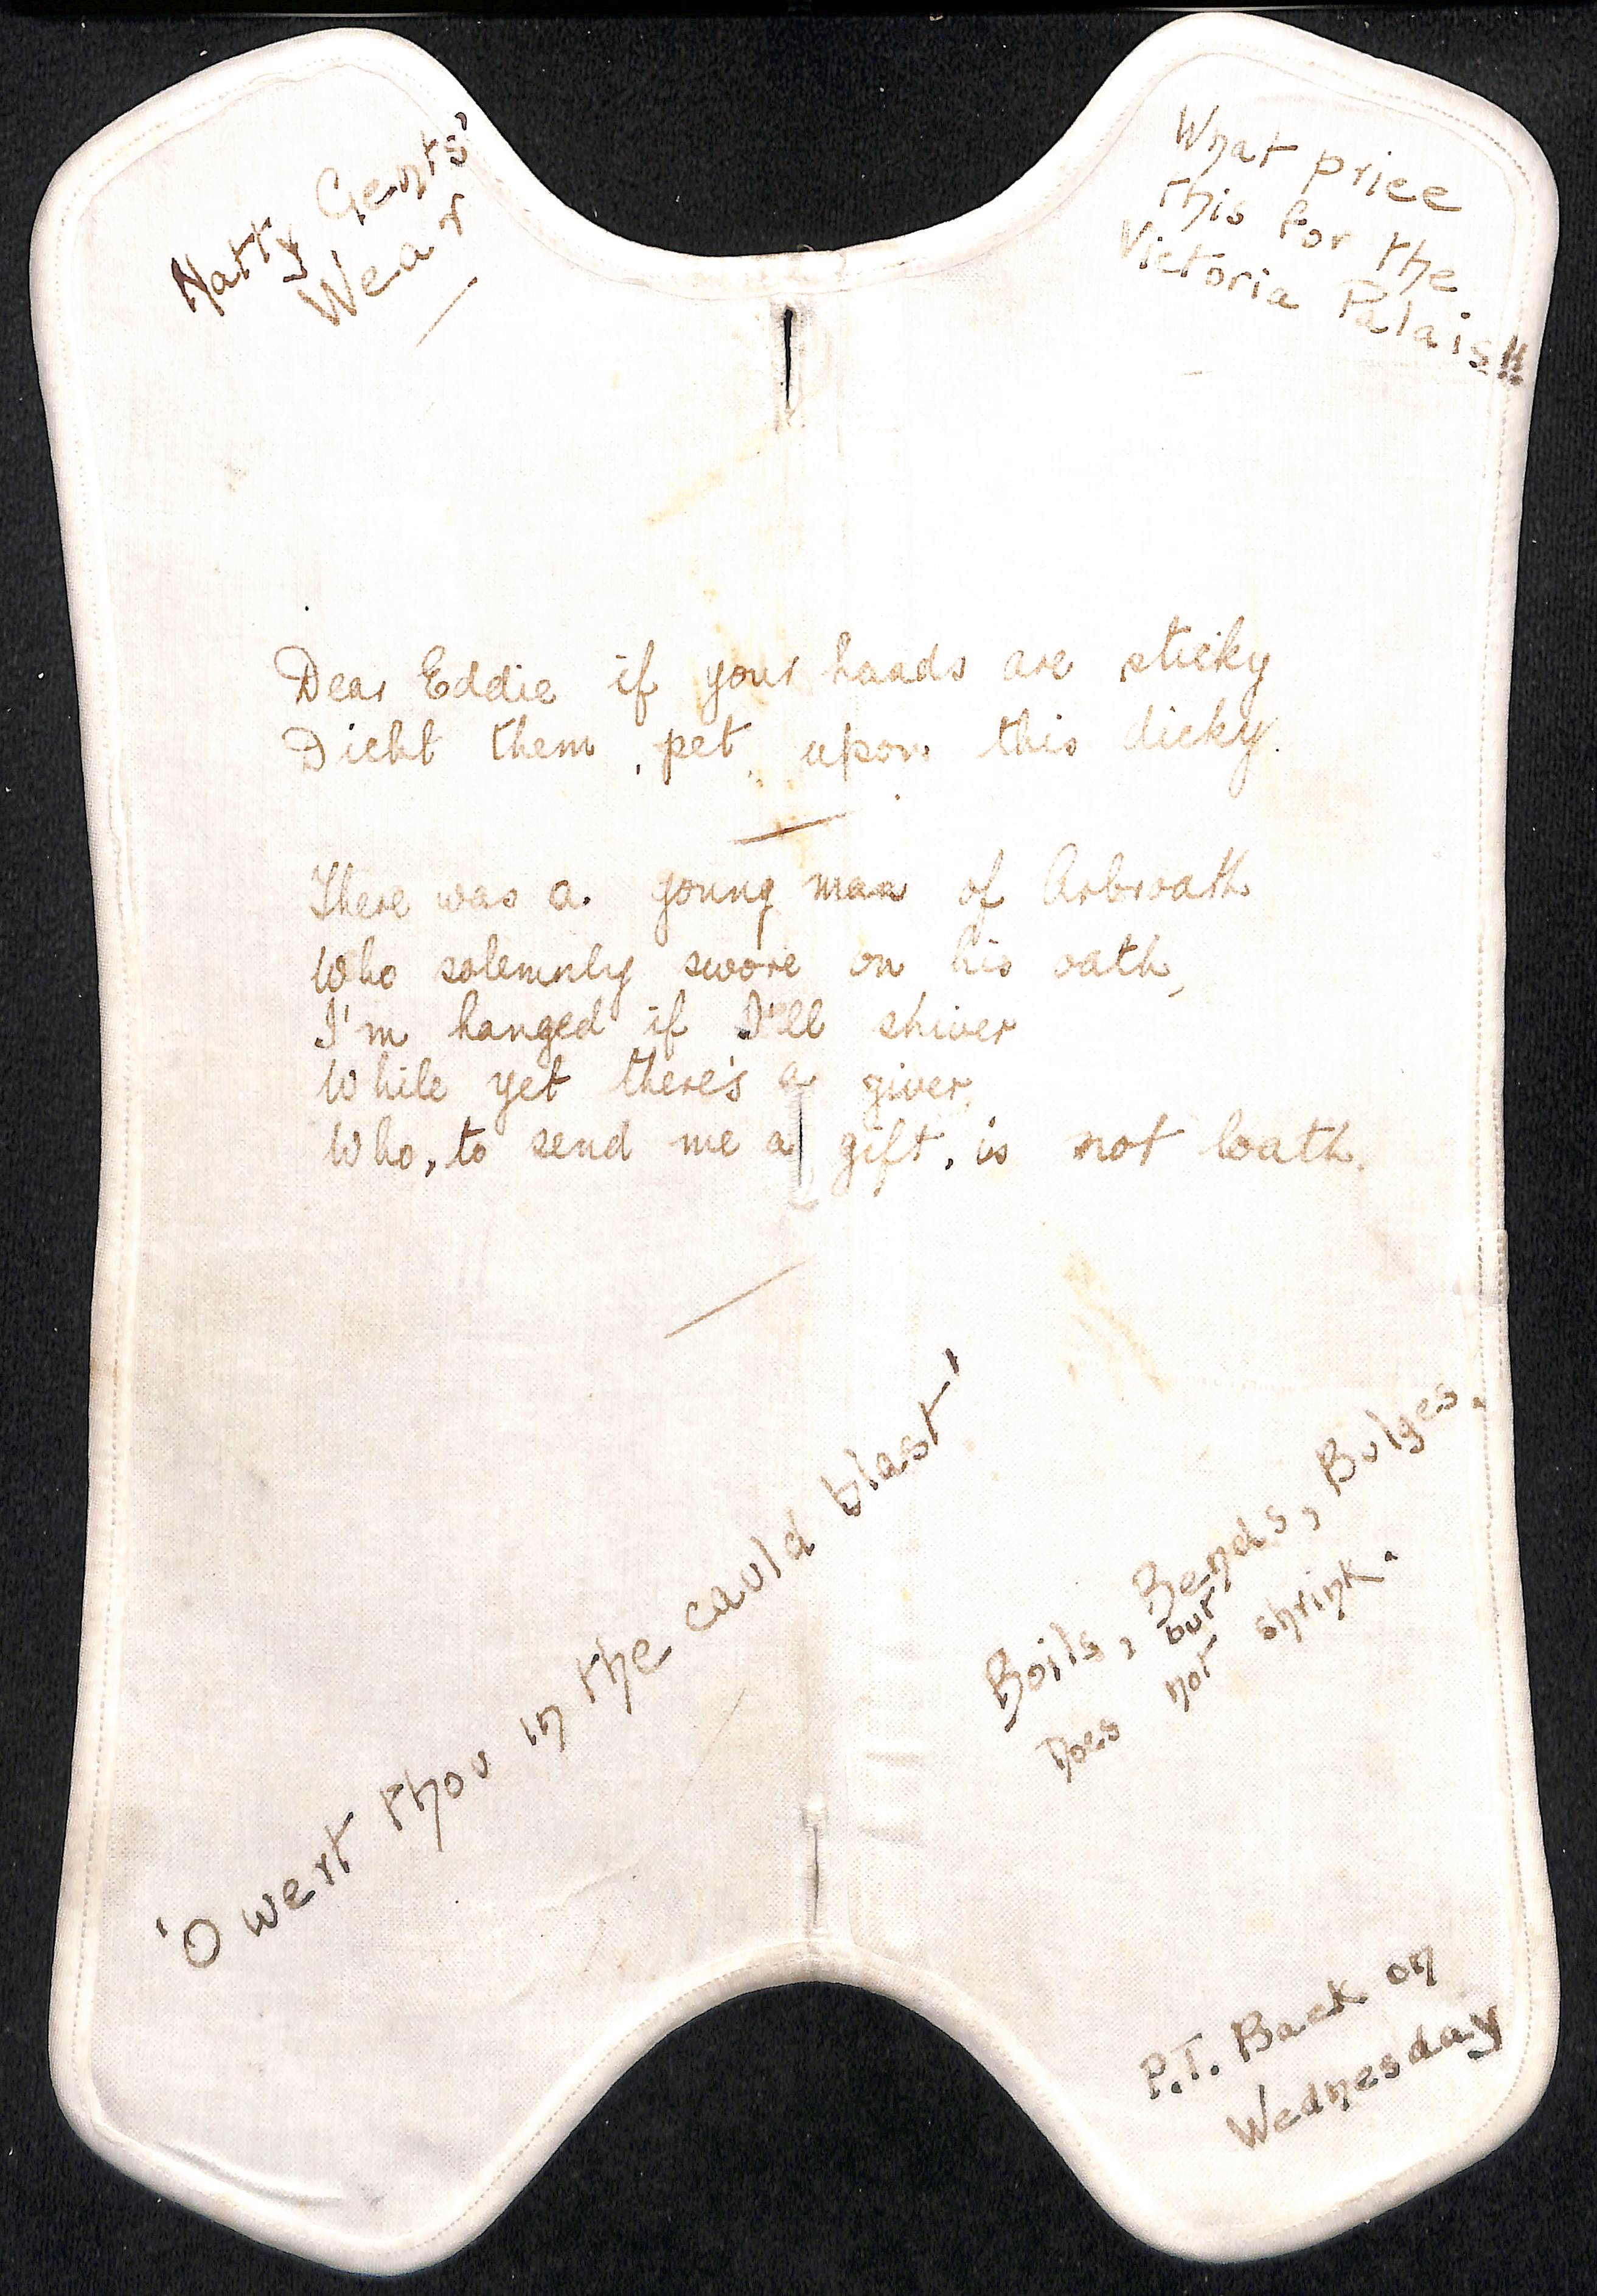 Natty Gents'
Wear
What price
this for the
Victoria Palais!!
Dear Eddie if your hands are sticky
Dicht them, pet, upon this dicky.
There was a young man of Arbroath
Who solemnly swore on his oath,
I'm hanged if I'll shiver
While yet there's a giver,
Who, to send me a gift, is not loath.
'O wert thou in the cauld blast'
Boils, Bends, Bulges,
but
Does not shrink.
P.T. Back on
Wednesday